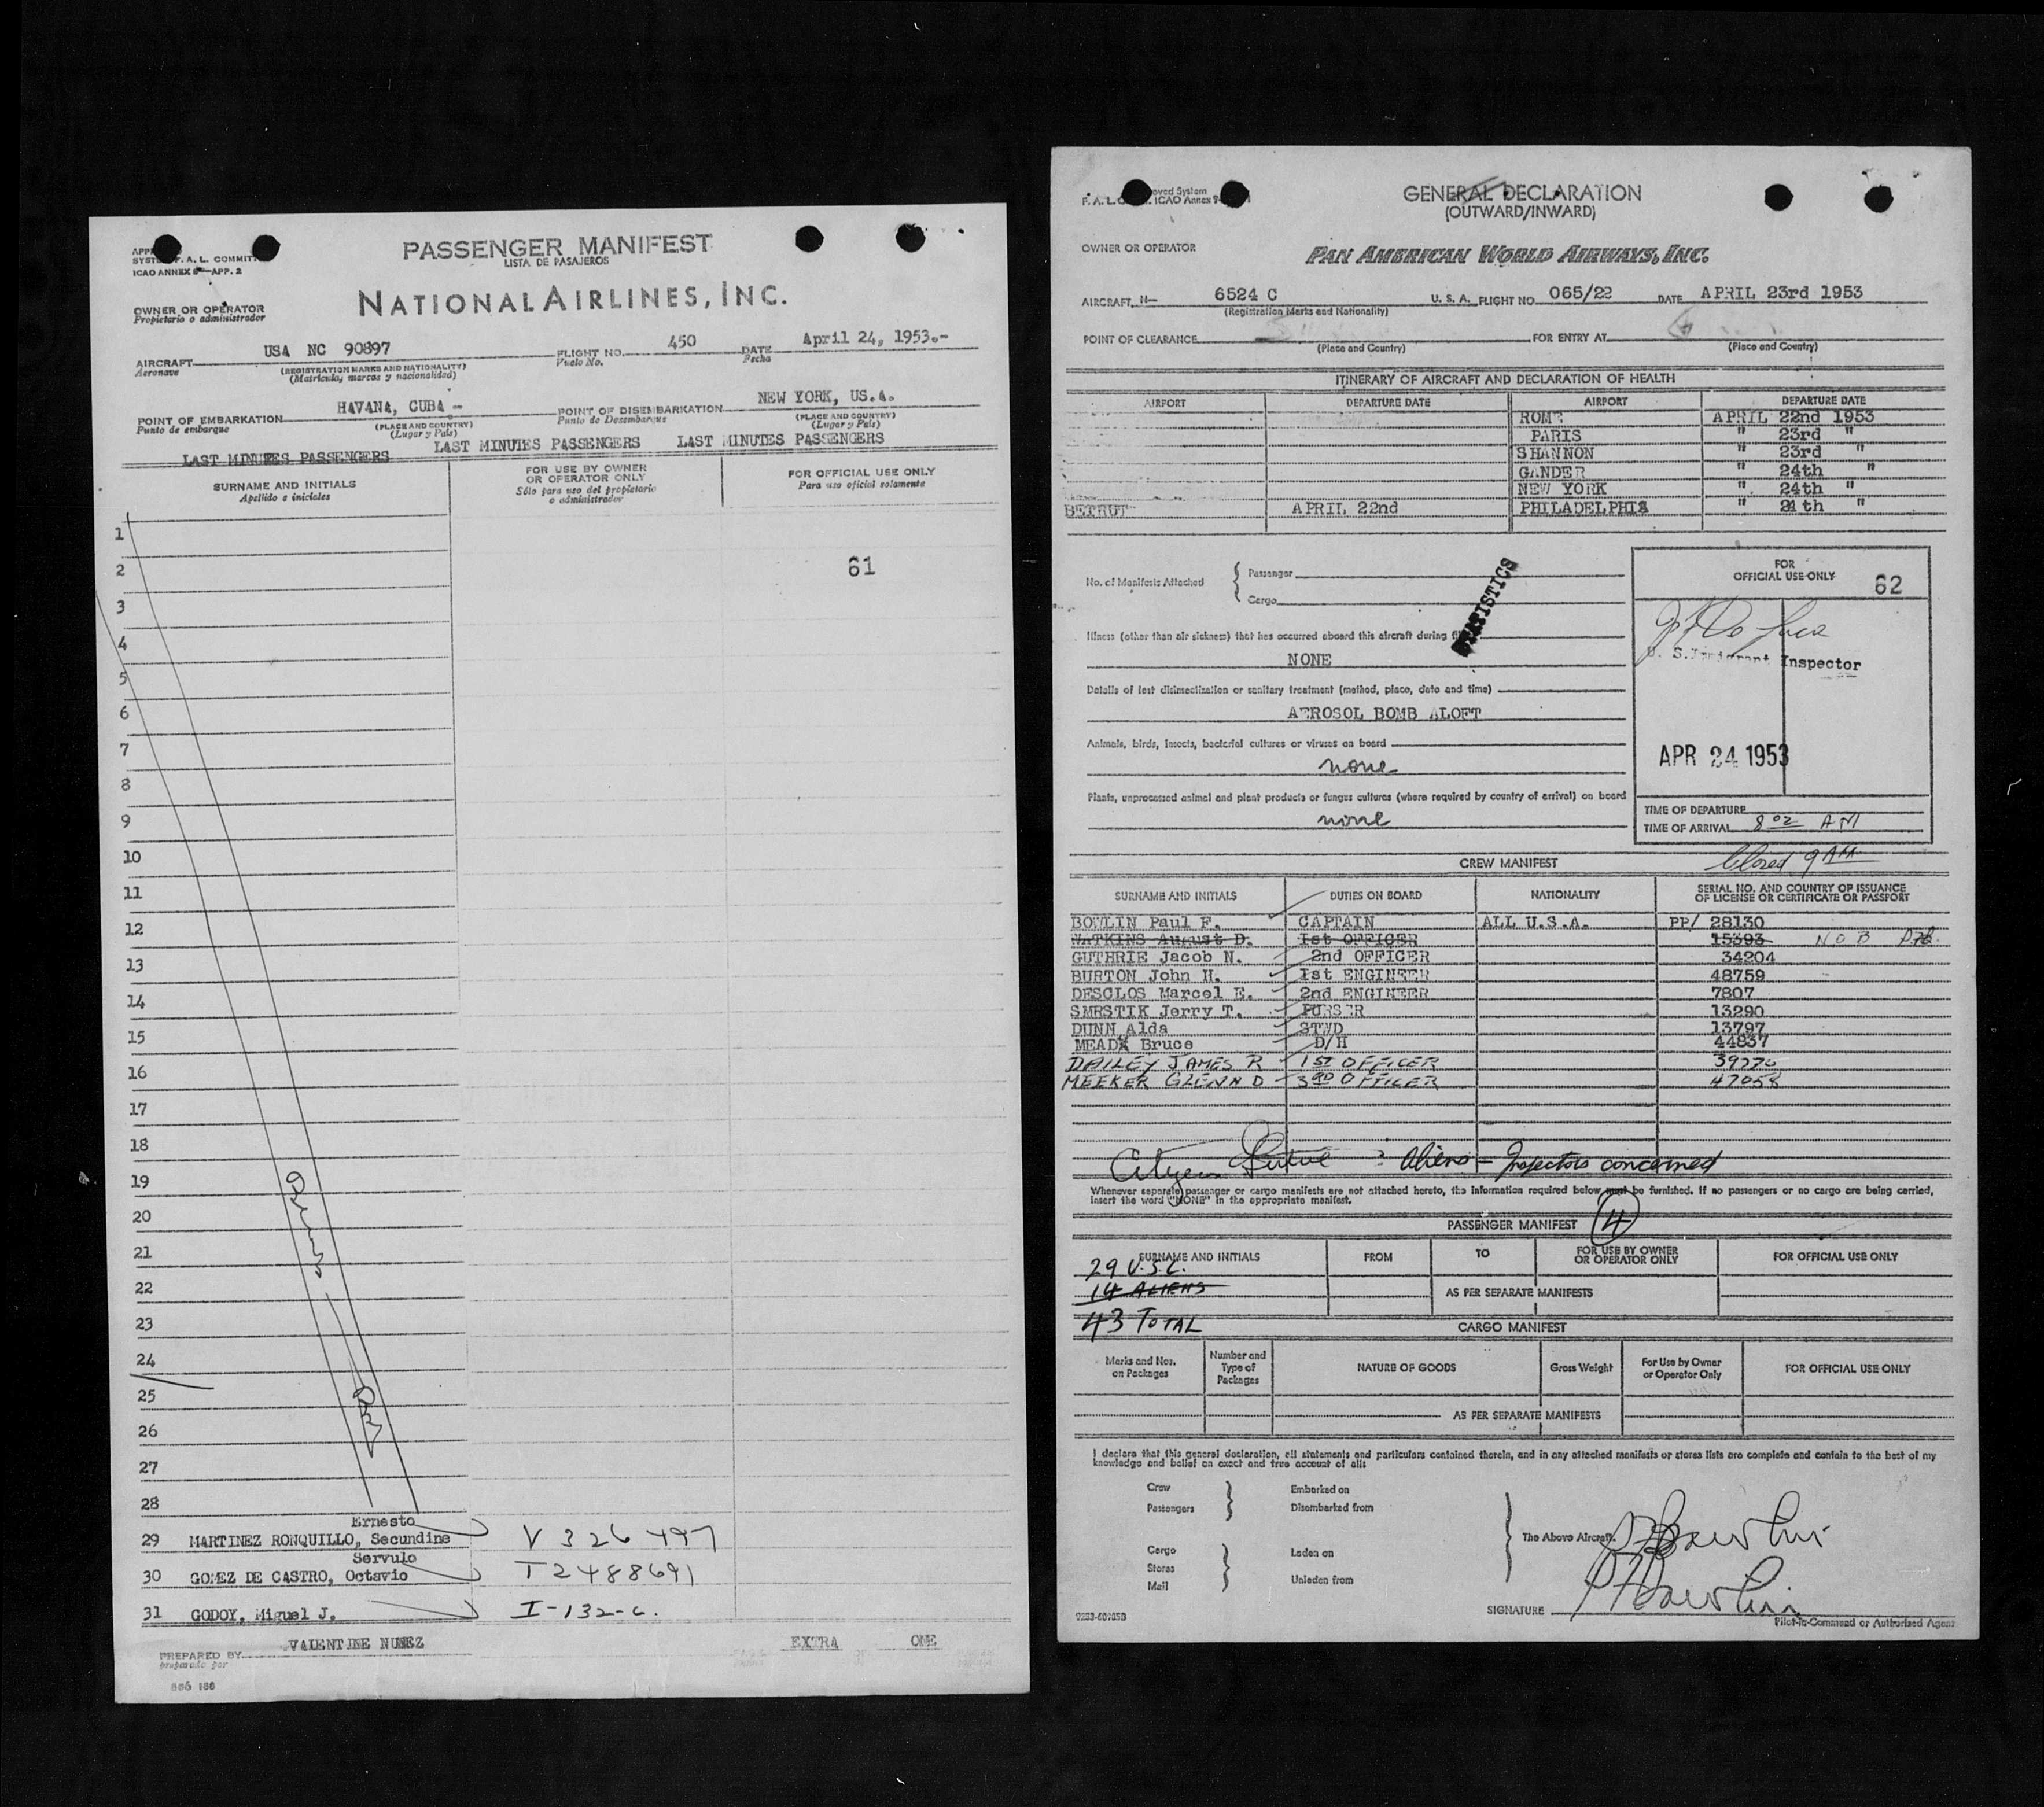 PASSENGER MANIFEST
LISTA DE PASAJEROS
SYSTEM F. A. L. COMMITT
ICAO ANNEX 9—APP. 2
NATIONAL AIRLINES, INC.
OWNER OR OPERATOR
Propietario o administrador
AIRCRAFT USA NC 90897 FLIGHT NO. 450 DATE April 24, 1953.-
Aeronave (REGISTRATION MARKS AND NATIONALITY) Vuelo No. Fecha
(Matricula, marcas y nacionalidad)
POINT OF EMBARKATION HAVANA, CUBA - POINT OF DISEMBARKATION NEW YORK, US.A.
Punto de embarque (PLACE AND COUNTRY) Punto de Desembarque (PLACE AND COUNTRY)
(Lugar y País) (Lugar y País)
LAST MINUTES PASSENGERS LAST MINUTES PASSENGERS LAST MINUTES PASSENGERS
SURNAME AND INITIALS
Apellido e iniciales
FOR USE BY OWNER
OR OPERATOR ONLY
Sólo para uso del propietario
o administrador
FOR OFFICIAL USE ONLY
Para uso oficial solamente
1
2 61
3
4
5
6
7
8
9
10
11
12
13
14
15
16
17
18
19
20
21
22
23
24
25
26
27
28
Ernesto
29 MARTINEZ RONQUILLO, Secundine V 326497
Servulo
30 GOMEZ DE CASTRO, Octavio T2488691
31 GODOY, Miguel J. I-132-C.
PREPARED BY VALENTINE NUNEZ EXTRA ONE
preparado por
GENERAL DECLARATION
(OUTWARD/INWARD)
oved System
F. A. L. C ICAO Annex 9
OWNER OR OPERATOR PAN AMERICAN WORLD AIRWAYS, INC.
AIRCRAFT, N— 6524 C U. S. A. FLIGHT NO. 065/22 DATE APRIL 23rd 1953
(Registration Marks and Nationality)
POINT OF CLEARANCE FOR ENTRY AT
(Place and Country) (Place and Country)
ITINERARY OF AIRCRAFT AND DECLARATION OF HEALTH
AIRPORT DEPARTURE DATE AIRPORT DEPARTURE DATE
ROME APRIL 22nd 1953
PARIS " 23rd "
SHANNON " 23rd "
GANDER " 24th "
NEW YORK " 24th "
BEIRUT APRIL 22nd PHILADELPHIA " 24th "
No. of Manifests Attached
Passenger
Cargo
STATISTICS
Illness (other than air sickness) that has occurred aboard this aircraft during
NONE
Details of last disinsectization or sanitary treatment (method, place, date and time)
AEROSOL BOMB ALOFT
Animals, birds, insects, bacterial cultures or viruses on board
none
Plants, unprocessed animal and plant products or fungus cultures (where required by country of arrival) on board
none
FOR
OFFICIAL USE ONLY 62
U. S. Immigrant Inspector
APR 24 1953
TIME OF DEPARTURE
TIME OF ARRIVAL 8 02 AM
Closed 9 AM
CREW MANIFEST
SURNAME AND INITIALS DUTIES ON BOARD NATIONALITY SERIAL NO. AND COUNTRY OF ISSUANCE
OF LICENSE OR CERTIFICATE OR PASSPORT
BOWLIN Paul F. CAPTAIN ALL U.S.A. PP/ 28130
WATKINS August D. 1st OFFICER 15393 NOB
GUTHRIE Jacob N. 2nd OFFICER 34204
BURTON John H. 1st ENGINEER 48759
DESCLOS Marcel E. 2nd ENGINEER 7807
SMRSTIK Jerry T. PURSER 13290
DUNN Alda STWD 13797
MEAD Bruce D/H 44837
DAILEY JAMES R 1ST OFFICER 39776
MEEKER GLENN D 3RD OFFICER 47058
Aliens - Inspectors concerned
Whenever separate passenger or cargo manifests are not attached hereto, the information required below must be furnished. If no passengers or no cargo are being carried,
insert the word "NONE" in the appropriate manifest.
PASSENGER MANIFEST 4
SURNAME AND INITIALS FROM TO FOR USE BY OWNER
OR OPERATOR ONLY FOR OFFICIAL USE ONLY
29 U.S.C.
14 ALIENS AS PER SEPARATE MANIFESTS
43 TOTAL CARGO MANIFEST
Marks and Nos.
on Packages
Number and
Type of
Packages
NATURE OF GOODS Gross Weight For Use by Owner
or Operator Only FOR OFFICIAL USE ONLY
AS PER SEPARATE MANIFESTS
I declare that this general declaration, all statements and particulars contained therein, and in any attached manifests or stores lists are complete and contain to the best of my
knowledge and belief an exact and true account of all:
Crew Embarked on
Passengers Disembarked from
The Above Aircraft.
Cargo Laden on
Stores
Mail Unladen from
SIGNATURE
Pilot-in-Command or Authorized Agent